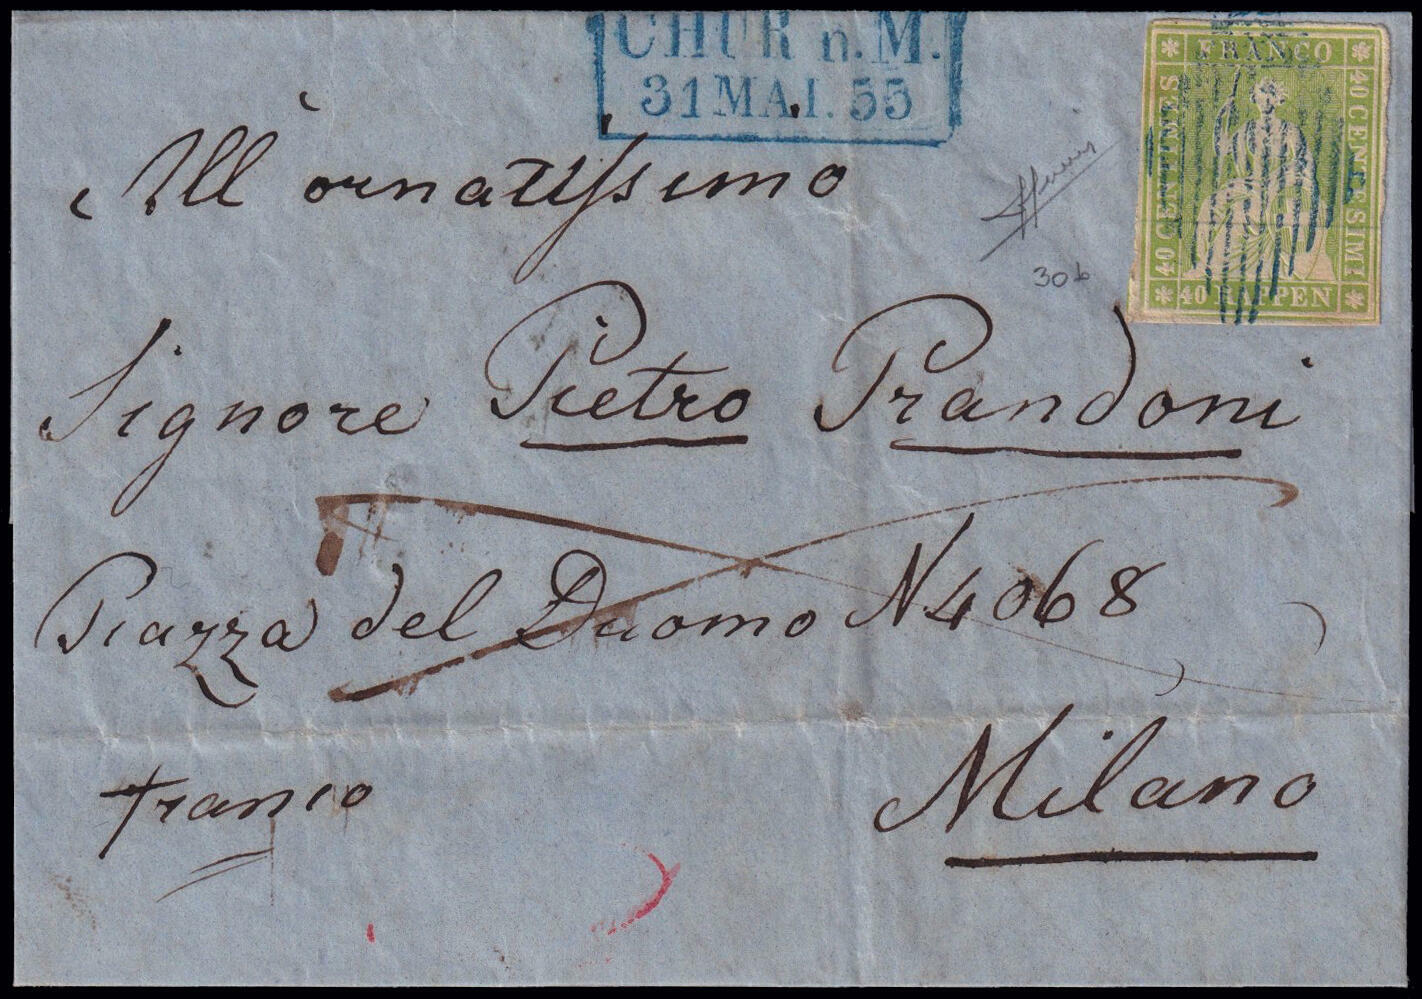 CHUR n. M.
31 MAI. 55
FRANCO
40 CENTIMES
40 CENTESIMI
40 RAPPEN
30b
All' ornatissimo
Signore Pietro Prandoni
Piazza del Duomo N 4068
Milano
franco